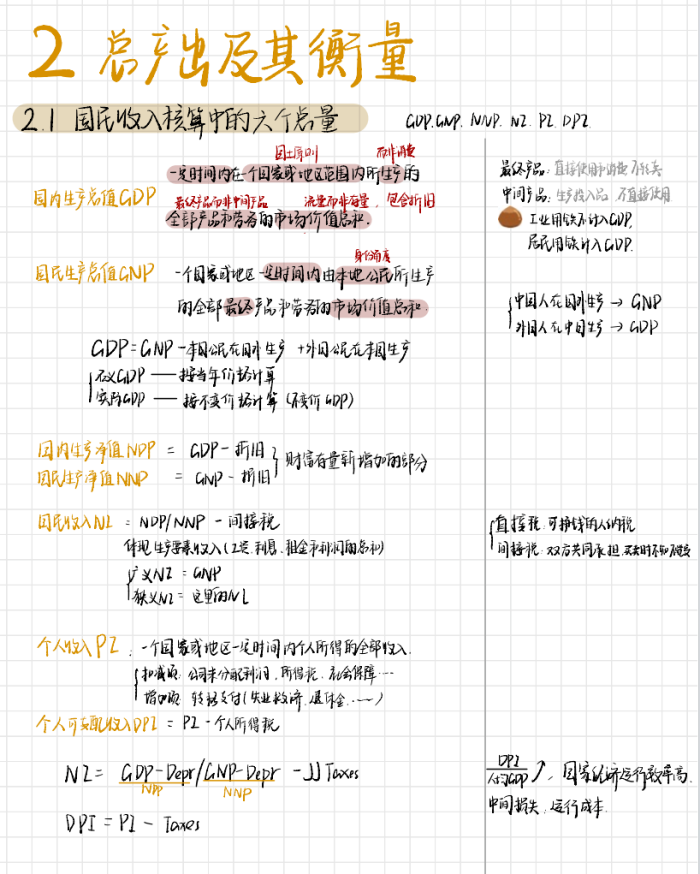 2 总产出及其衡量
2.1 国民收入核算中的六个总量
GDP. GNP. NNP. NI. PI. DPI.
国土原则 而非消费
一定时间内在一个国家或地区范围内所生产的
国内生产总值GDP
最终产品而非中间产品 流量而非存量, 包含折旧
全部产品和劳务的市场价值总和.
最终产品: 直接使用和消费
中间产品: 生产投入品 不直接使用
工业用铁不计入GDP.
居民用铁计入GDP.
身份角度
国民生产总值GNP 一个国家或地区一定时间内由本地公民所生产
的全部最终产品和劳务的市场价值总和.
中国人在国外生产 → GNP
外国人在中国生产 → GDP
GDP = GNP - 本国公民在国外生产 + 外国公民在本国生产
名义GDP —— 按当年价格计算
实际GDP —— 按不变价格计算 (不变价GDP)
国内生产净值NDP = GDP - 折旧
国民生产净值NNP = GNP - 折旧
财富存量新增加的部分
国民收入NI = NDP/NNP - 间接税
体现生产要素收入(工资.利息.租金和利润的总和)
广义NI = GNP
狭义NI = 这里的NI
直接税: 可挣钱的人纳税
间接税: 双方共同承担.
个人收入PI: 一个国家或地区一定时间内个人所得的全部收入.
扣减项: 公司未分配利润. 所得税. 社会保障…
增加项: 转移支付(失业救济. 退休金. ……)
个人可支配收入DPI = PI - 个人所得税
NI = GDP-Depr/GNP-Depr - JJ Taxes
NDP NNP
DPI = PI - Taxes
DPI
人均GDP ↗, 国家经济运行效率高.
中间损失, 运行成本.